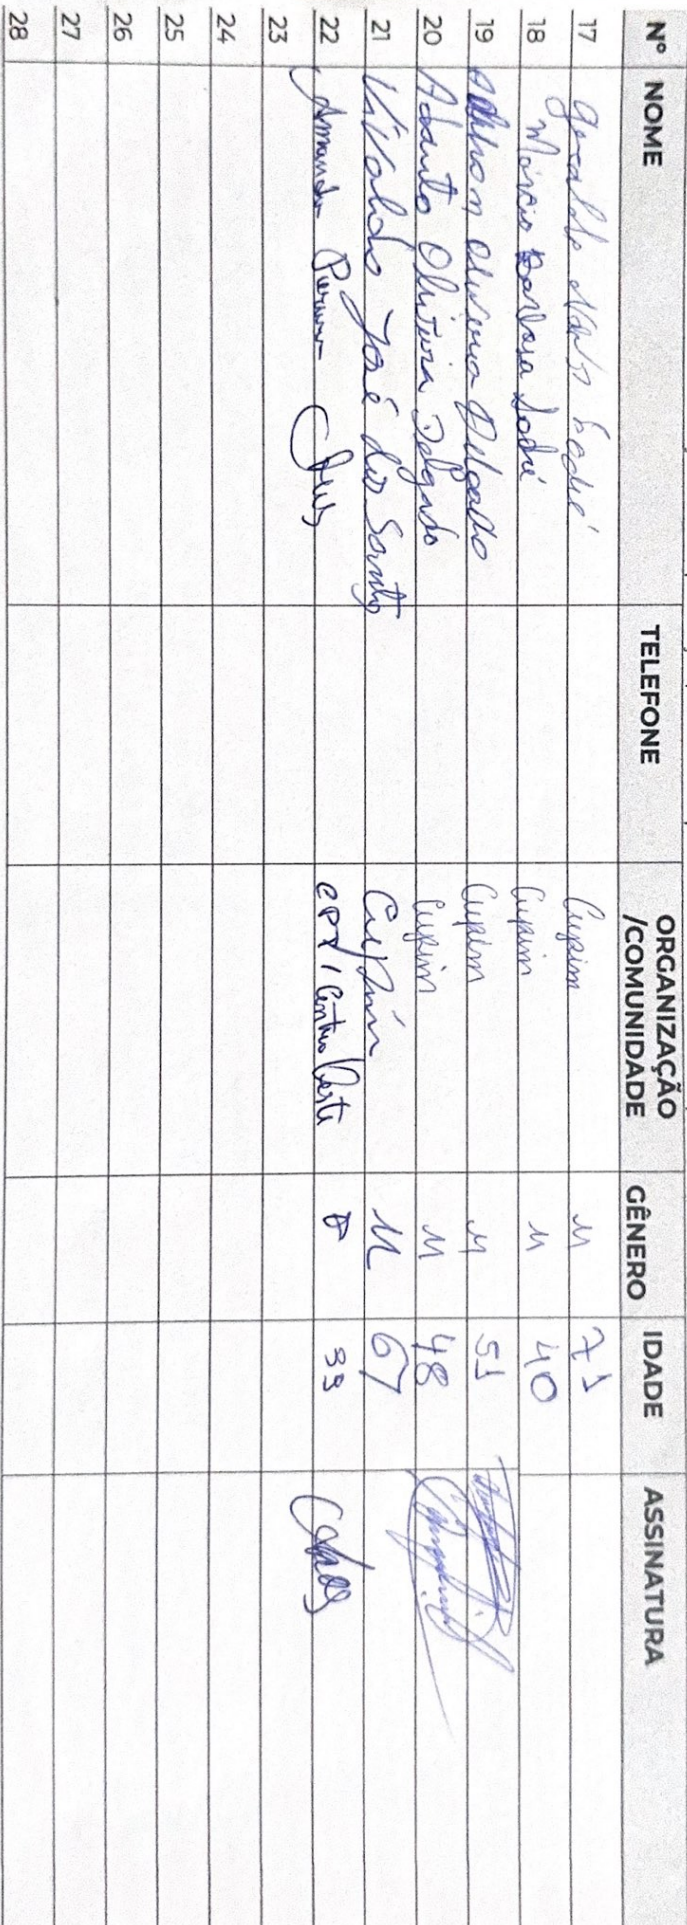 Nº NOME TELEFONE ORGANIZAÇÃO /COMUNIDADE GÊNERO IDADE ASSINATURA
17 Geraldo Sodré Cupim M 71
18 Márcio Barbosa Sodré Cupim M 40
19 Oliveira Delgado Cupim M 51
20 Oliveira Delgado Cupim M 48
21 José dos Santos Cupim M 67
22 Amanda CPT / Centro Oeste F 39
23
24
25
26
27
28